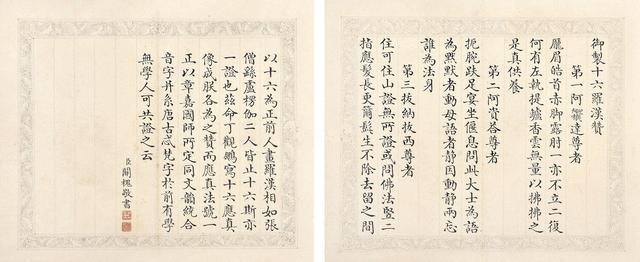 御製十六羅漢贊
第一阿達尊者
龐眉皓首赤腳露肘一亦不立二復
何有左執提壚香雲無量以拂拂之
是真供養
第二阿資答尊者
扼腕趺足宴坐偃息問此大士為語
為默默者動毋語者靜因動靜兩忘
誰為法身
第三拔納拔西尊者
住可住山證無所證或問佛法豎二
指應髮長更髭生不除去留之間
以十六為正前人畫羅漢相如張
僧繇盧楞伽二人皆止十六斯亦
一證也茲命丁觀鵬寫十六應真
像成朕各為之贊而應真法號一
正以章嘉國師所定同文韻統合
音字并系唐古忒梵字於前有學
無學人可共證之云
臣關槐敬書